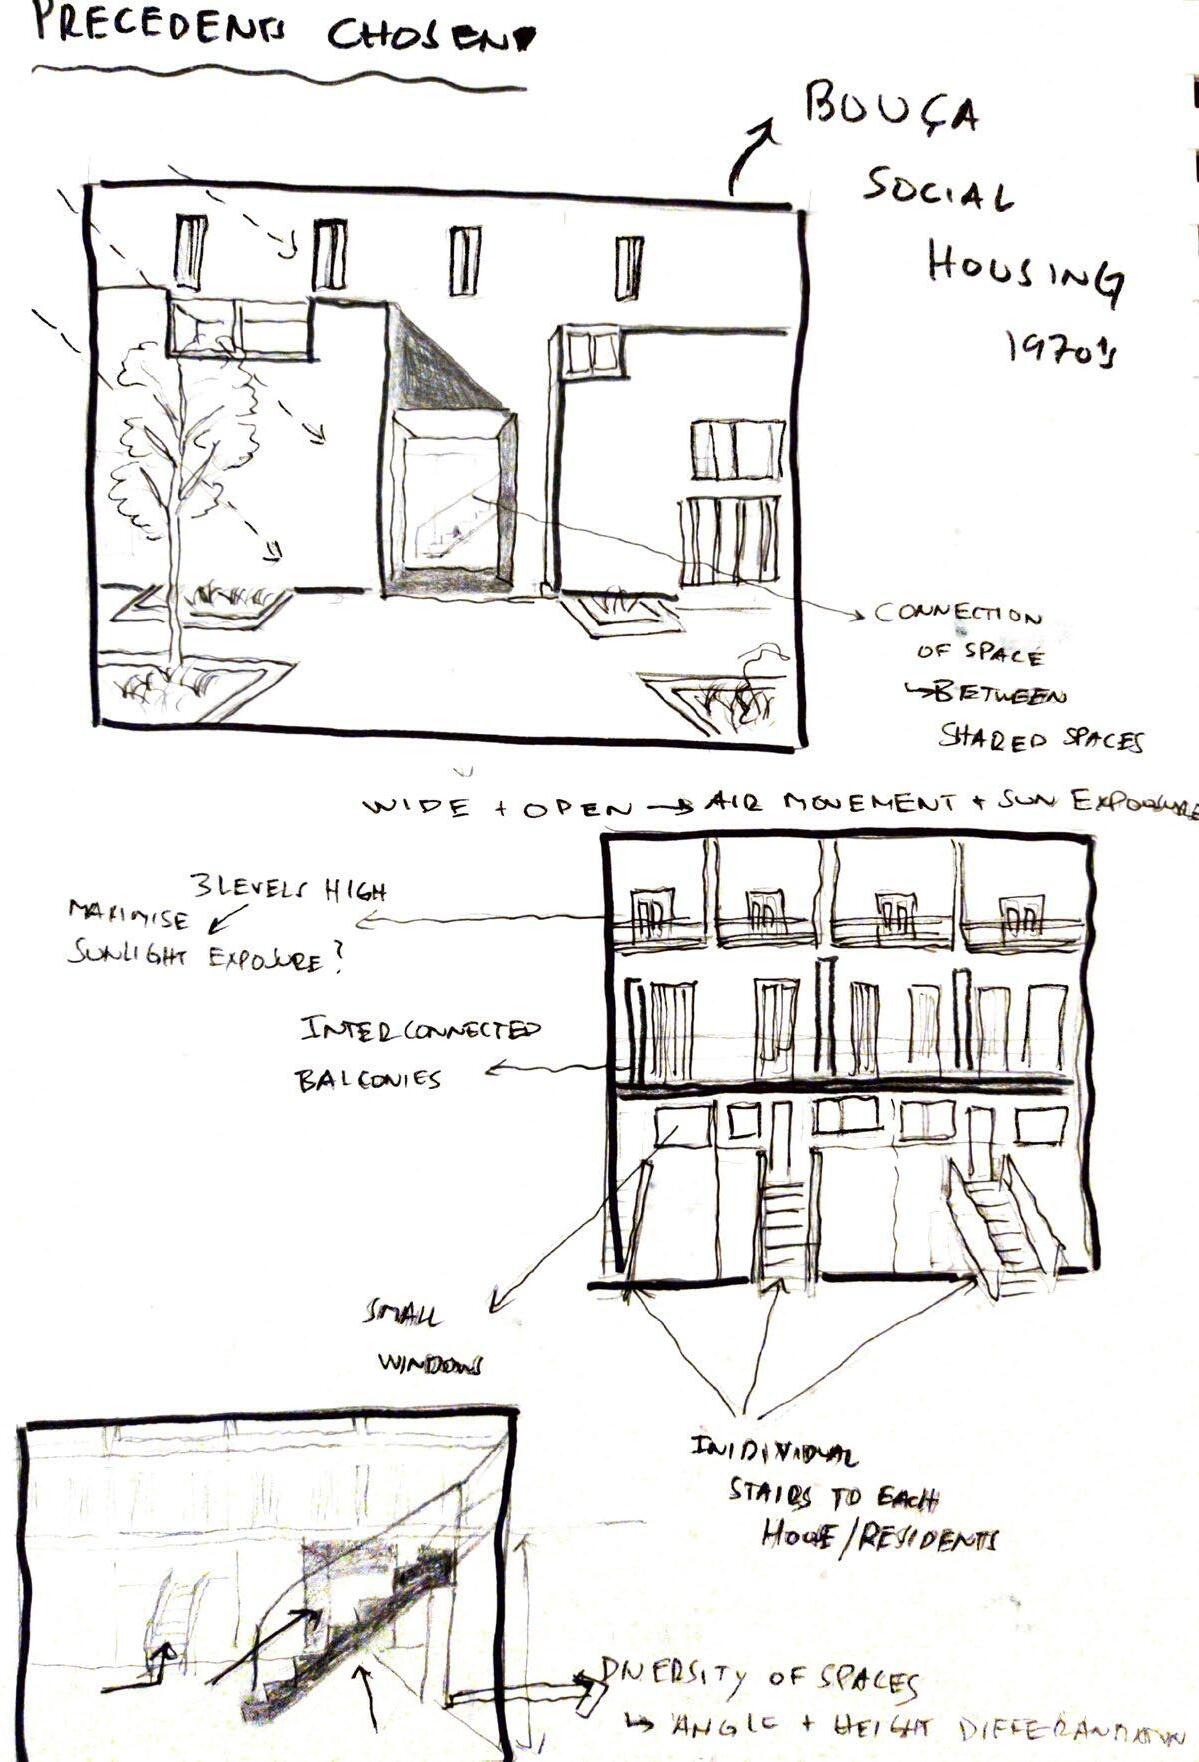 PRECEDENTS CHOSEN
BOUÇA
SOCIAL
HOUSING
1970's
CONNECTION
OF SPACE
↳BETWEEN
SHARED SPACES
WIDE + OPEN → AIR MOVEMENT + SUN EXPOSURE
3 LEVELS HIGH
MAXIMISE
SUNLIGHT EXPOSURE?
INTERCONNECTED
BALCONIES
SMALL
WINDOWS
INIDIVIDUAL
STAIRS TO EACH
HOME/RESIDENTS
DIVERSITY OF SPACES
↳ ANGLE + HEIGHT